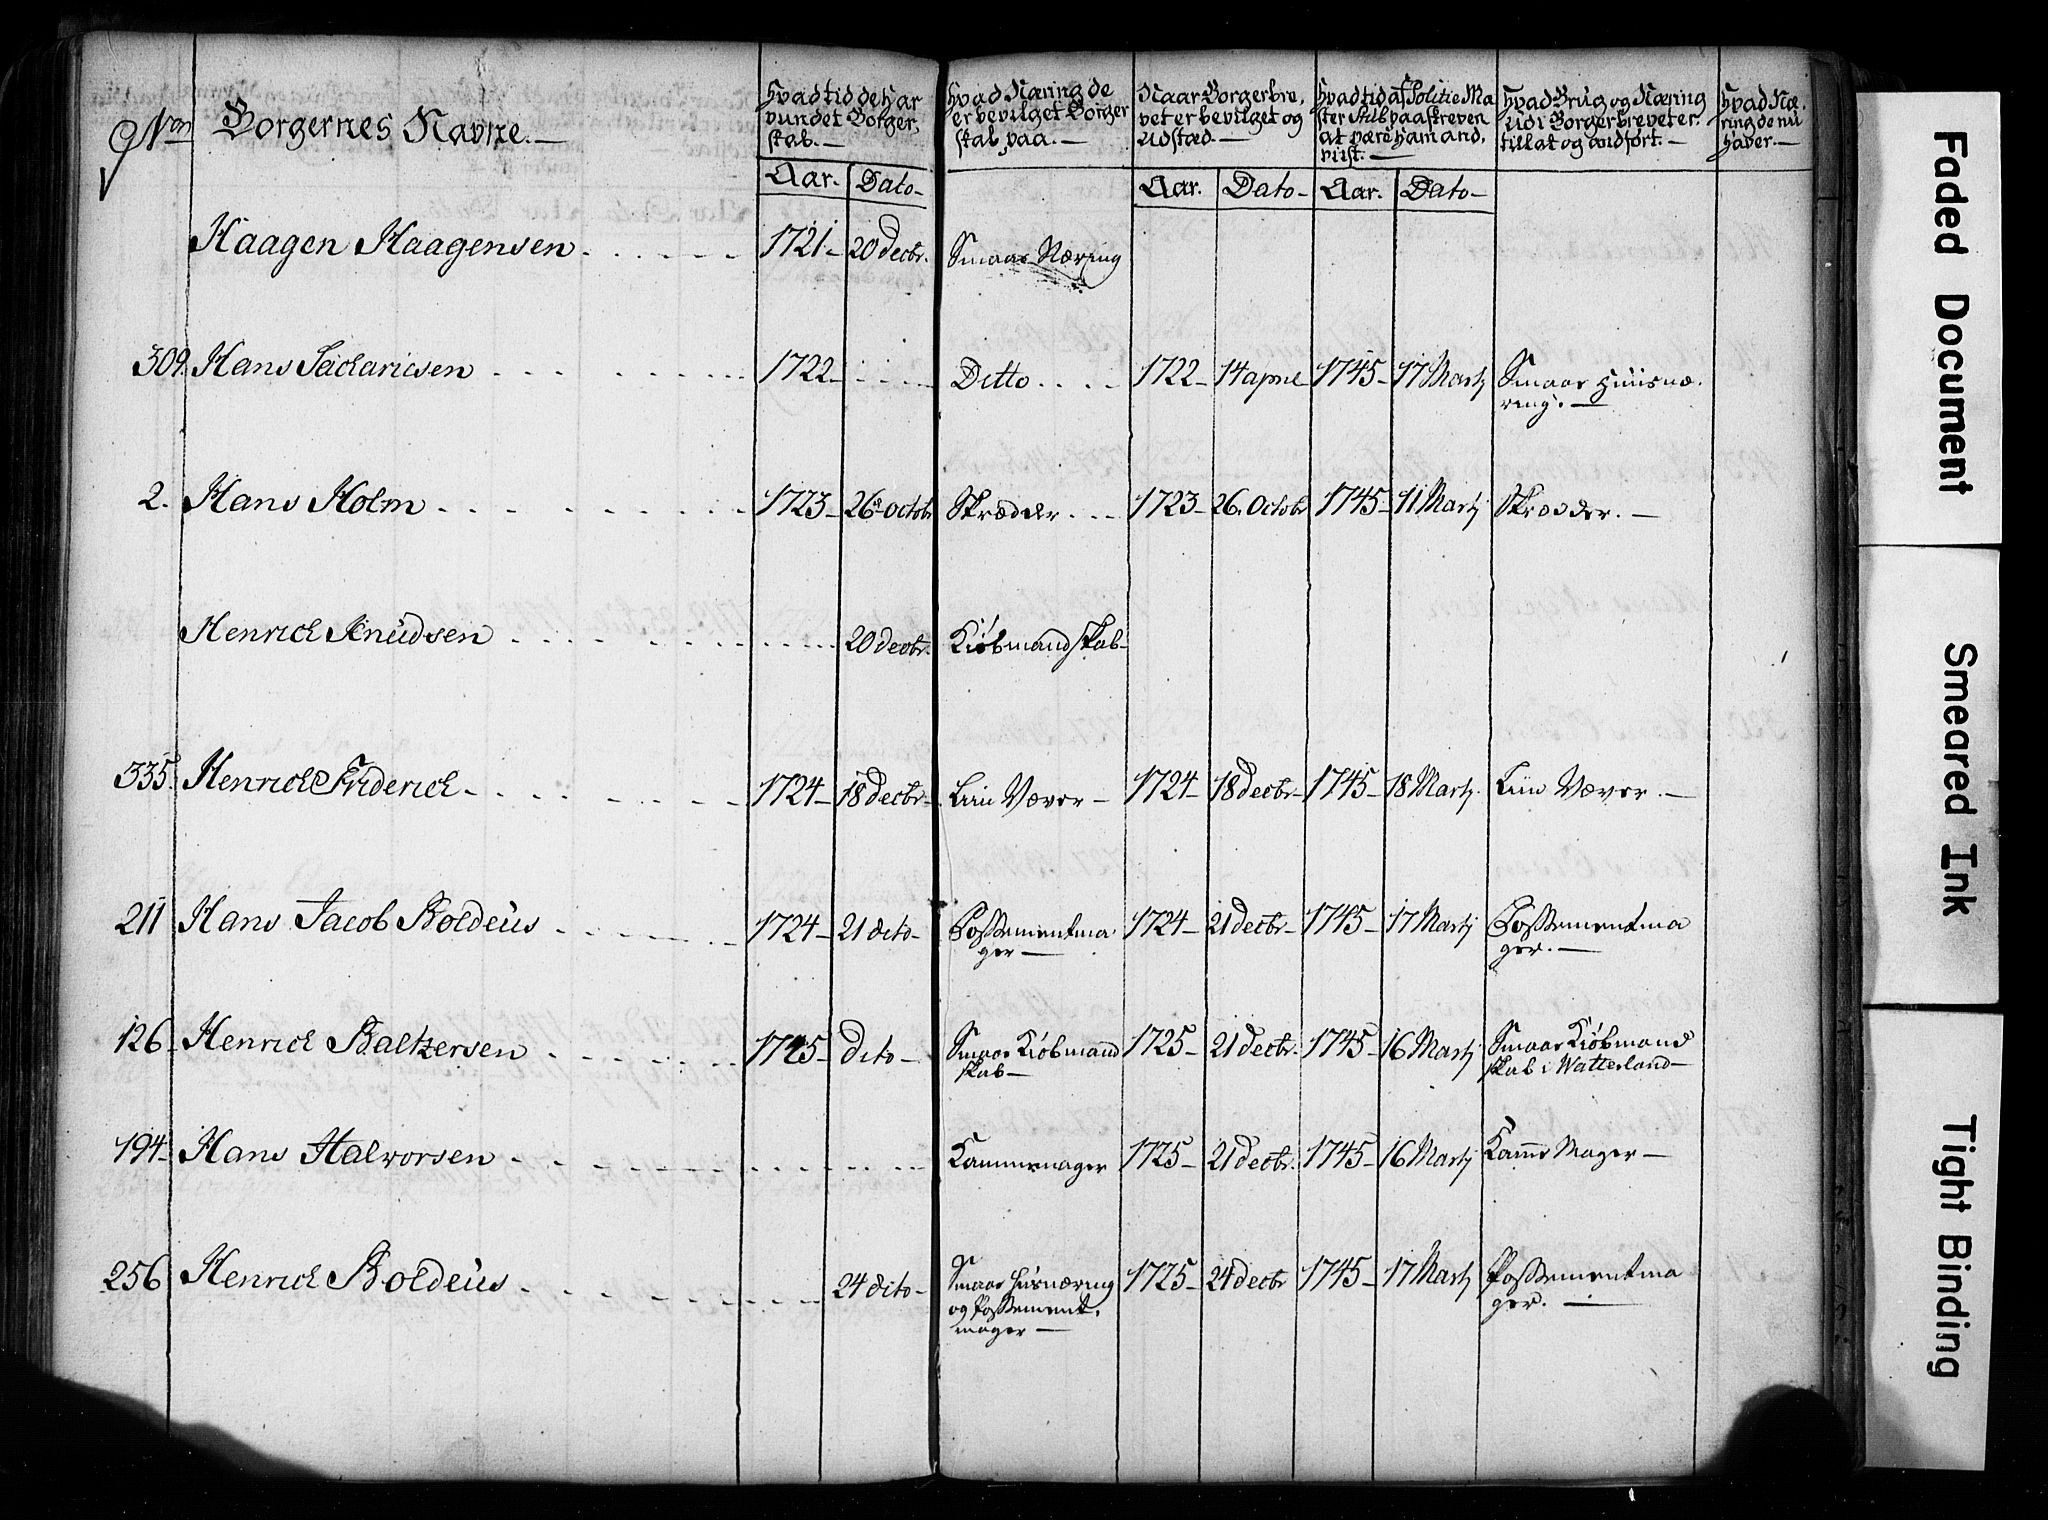 Nro
Borgernes Navne. —
Hvad tid de Har
vundet Borger,
skab. —
Aar. Dato —
Hvad Næring de
er bevilget Borger
skab paa. —
Naar Borgerbre,
vet er bevilget og
udstæd. —
Aar. Dato —
Hvad tid af Politie Ma
ster Stub paaskreven
at være ham and,
viist. —
Aar. Dato —
Hvad Brug og Næring
udi Borgerbrevet er
tillat og andfört. —
Hvad Næ,
ring de nu
haver. —
Haagen Haagensen . . . . . . 1721 — 20 Decbr. Smaae Næring
309. Hans Sacharicsen . . . . . . 1722 — . . . . Ditto . . . . 1722 — 14 aprie 1745 — 17 Martj Smaae Huusnæ.
ring. —
2. Hans Holm . . . . . . 1723 — 26 Octobr Skrædder . . . 1723 — 26. Octobr 1745 — 11 Martj Skrædder. —
Henrich Knudsen . . . . . . 20 decbr. Kiöbmandskab —
335. Henrich Friderich . . . . . . 1724 — 18 Decbr — Liin Væver — 1724 — 18 Decbr — 1745 — 18 Martj. Liin Væver. —
211 Hans Jacob Boldeus . . . . . . 1724 — 21 dito — Possementma 1724 — 21 Decbr — 1745 — 17 Martj Possementma
ger — ger. —
126. Henrich Baltzersen . . . . . . 1725 — dito — Smaae Kiöbmand 1725 — 21 Decbr. 1745 — 16 Martj Smaae Kiöbmand
skab — skab i Watterland —
194 — Hans Halworsen . . . . . . Kammager 1725 — 21 Decbr. 1745 — 16 Martj Kamme Mager —
256 Henrich Boldeus . . . . . . 24 dito — Smaae Husnæring 1725 — 24 Decbr 1745 — 17 Martj Possementma
og Possement, ger. —
mager —
Faded Document
Smeared Ink
Tight Binding